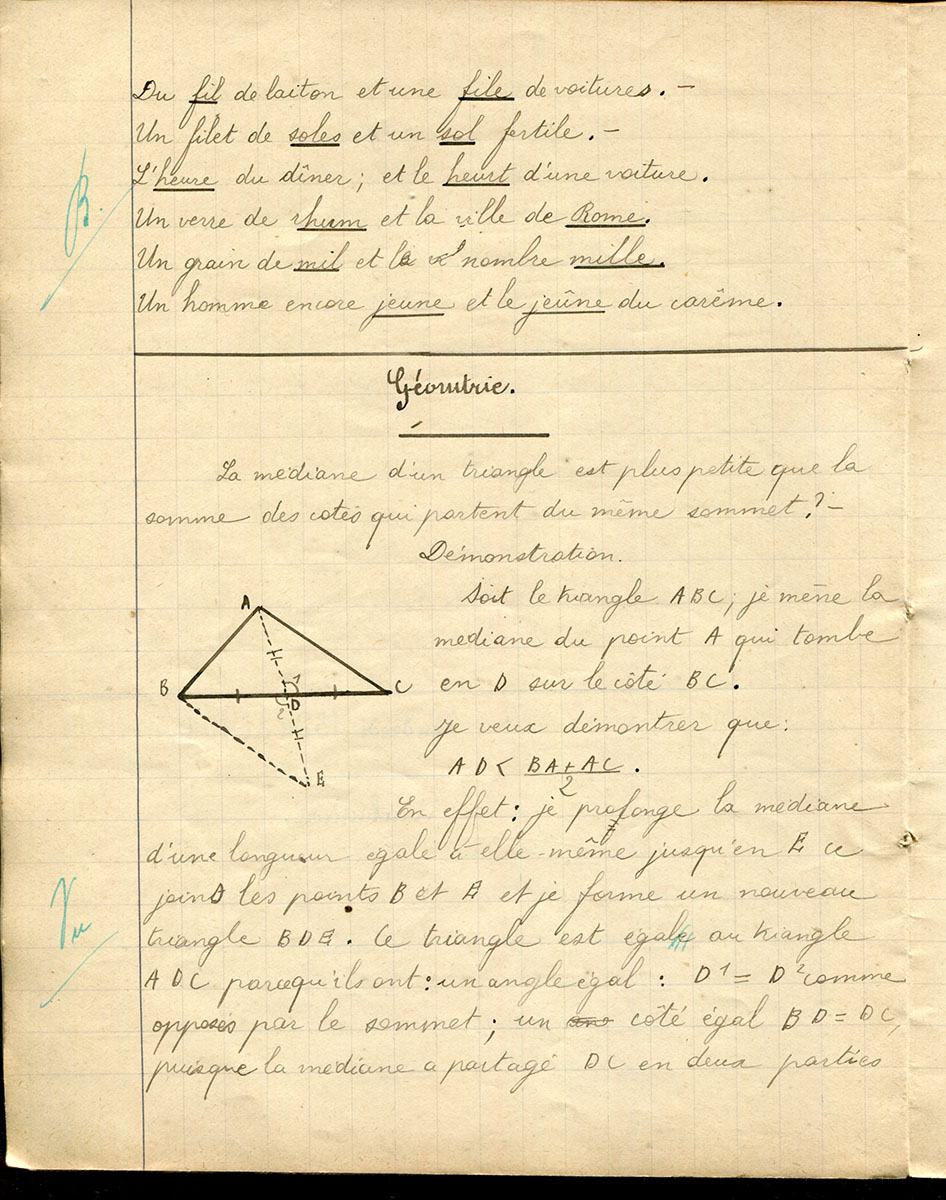 Du fil de laiton et une file de voitures. -
Un filet de soles et un sol fertile. -
L'heure du dîner; et le heurt d'une voiture.
Un verre de rhum et la ville de Rome.
Un grain de mil et le nombre mille.
Un homme encore jeune et le jeûne du carême.
B.
Géométrie.
La médiane d'un triangle est plus petite que la
somme des côtés qui partent du même sommet? -
Démonstration.
Soit le triangle ABC; je mène la
médiane du point A qui tombe
en D sur le côté BC.
Je veux démontrer que:
AD < BA + AC
2
.
A
B
C
1
2
D
E
En effet: je prolonge la médiane
d'une longueur égale à elle-même jusqu'en E
joins les points B et E et je forme un nouveau
triangle BDE. Ce triangle est égal au triangle
ADC parcequ'ils ont: un angle égal: D1 = D2 comme
opposés par le sommet; un côté égal BD = DC,
puisque la médiane a partagé DC en deux parties
Vu